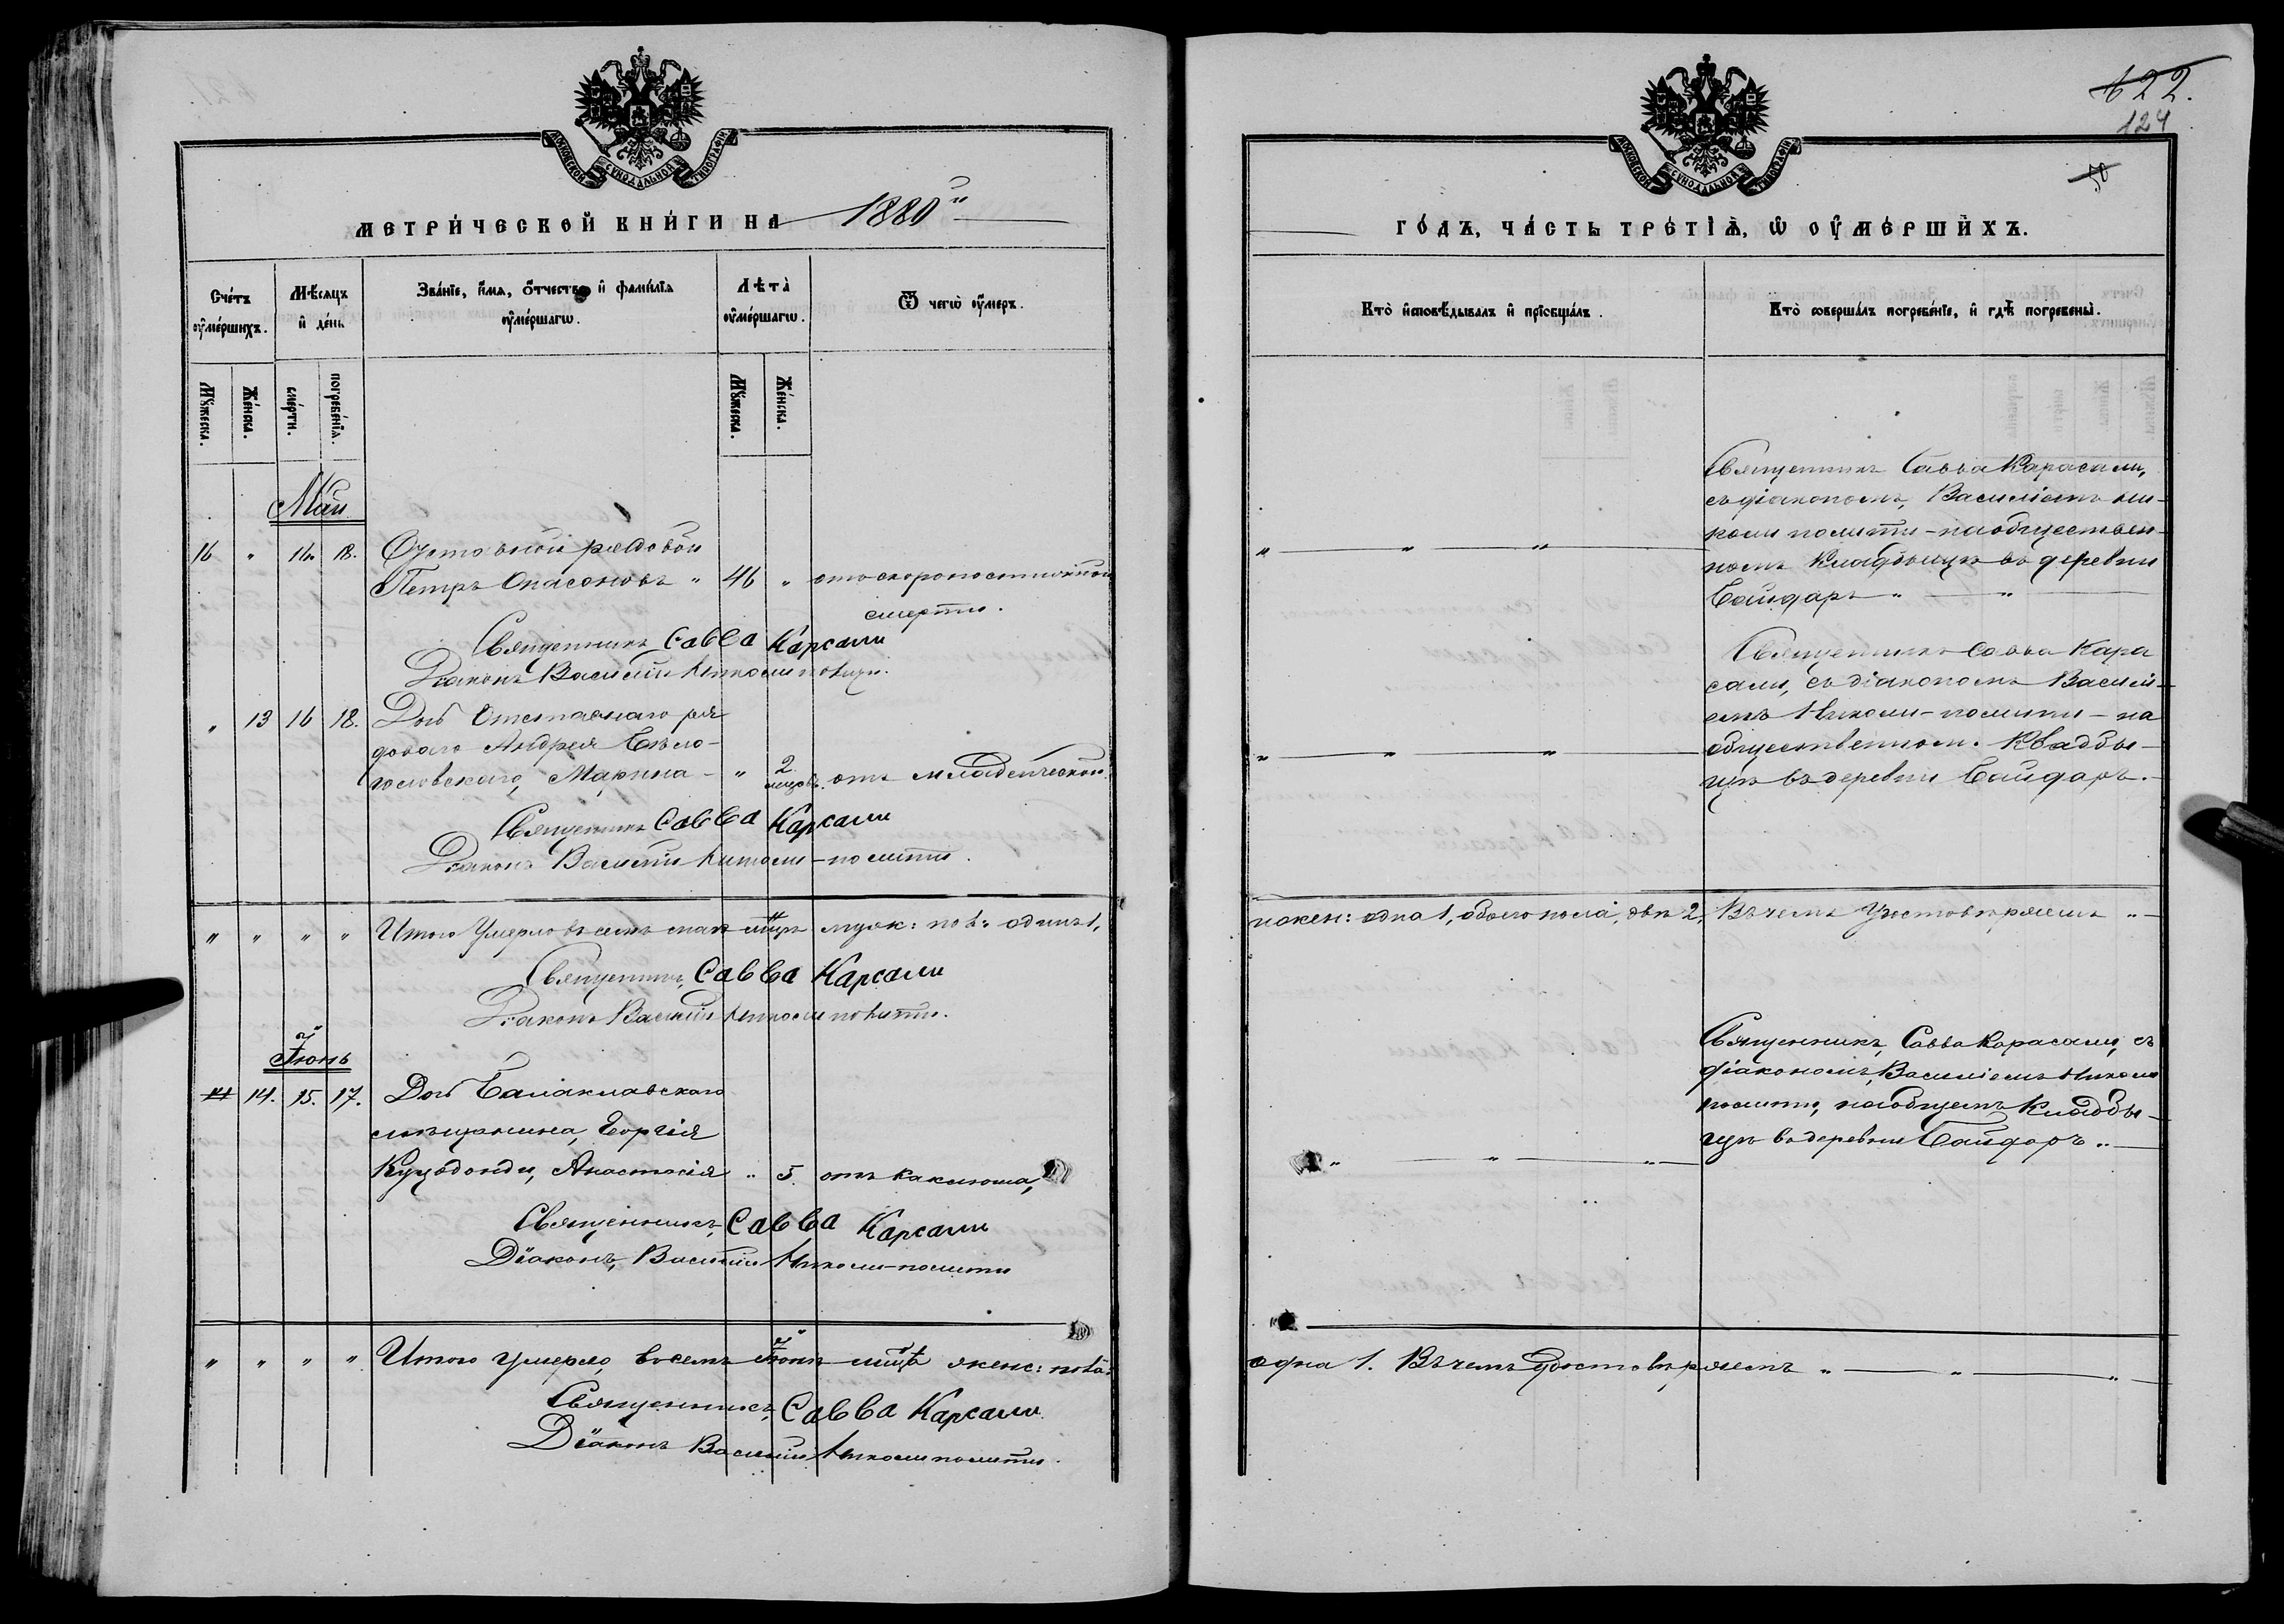 МОСКОВСКОЙ СѴНОДАЛЬНОЙ ТИПОГРАФІИ
МЕТРИ́ЧЕСКОЙ КНИ́ГИ НА 1880й
Сче́тъ ᲂу҆ме́ршихъ.
Мѣ́сяцъ и҆ де́нь
Зва́нїе, и҆́мѧ, ѻ҆́тчество и҆ фами́лїѧ ᲂу҆ме́ршагѡ.
Лѣта̀ ᲂу҆ме́ршагѡ.
Ѿ чегѡ̀ ᲂу҆́меръ.
Мꙋ́жеска.
Же́нска.
сме́рти.
погребе́нїѧ.
Мꙋ́жеска.
Же́нска.
Май
16 " 16. 18. Отставной рядовой
Петръ Опасоновъ " 46 " отъ скоропостижной
смерти.
Священникъ Савва Карсали
Діаконъ Василій
" 13 16 18. Дочь Отставнаго ря
доваго Андрея Бѣло-
головскаго, Марина - " 2 мцовъ. отъ младенческой.
Священникъ Савва Карсали
Діаконъ Василій
" " " " Итого Умерло въ семъ маѣ мцѣ муж: пола: одинъ 1,
Священникъ, Савва Карсали
Діаконъ Василій
Іюнь
14. 15. 17. Дочь Балаклавскаго
мѣщанина, Георгія
Анастасія " 5. отъ коклюша,
Священникъ, Савва Карсали
Діаконъ, Василій Николи-полити
" " " " Итого умерло, въ семъ Іюнѣ мцѣ женс: пола:
Священникъ, Савва Карсали
Діаконъ Василій Николиполити.
122.
124
50
МОСКОВСКОЙ СѴНОДАЛЬНОЙ ТИПОГРАФІИ
ГО́ДЪ, ЧА́СТЬ ТРЕ́ТІѦ, Ѡ ОУ҆МЕ́РШИХЪ.
Кто̀ и҆сповѣ́дывалъ и҆ прїѡбща́лъ.
Кто̀ соверша́лъ погребе́нїе, и҆ гдѣ̀ погребены̀.
Священникъ Савва Карасали,
съ діакономъ, Василіемъ Ни-
коли полити - на обществен-
номъ Кладбищѣ въ деревни
Байдаръ " "
" " "
Священникъ Савва Кара
сали, съ діакономъ Василі-
емъ Николи-полити - на
общественном. Кладби-
щѣ въ деревни Байдаръ.
" " "
и жен: одна 1, обоего пола, двѣ 2, Въ чемъ Удостовѣряемъ "
Священникъ, Савва Карасали, съ
діакономъ, Василіемъ Николи
полити, на общемъ Кладби-
щѣ въ деревни Байдаръ "
" " "
одна 1. Въ чемъ Удостовѣряемъ " " "